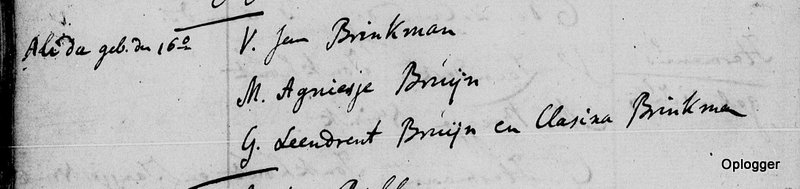 Alida geb. den 16º V. Jan Brinkman
M. Agniesje Bruijn
G. Leendrent Bruijn en Clasina Brinkman
Oplogger